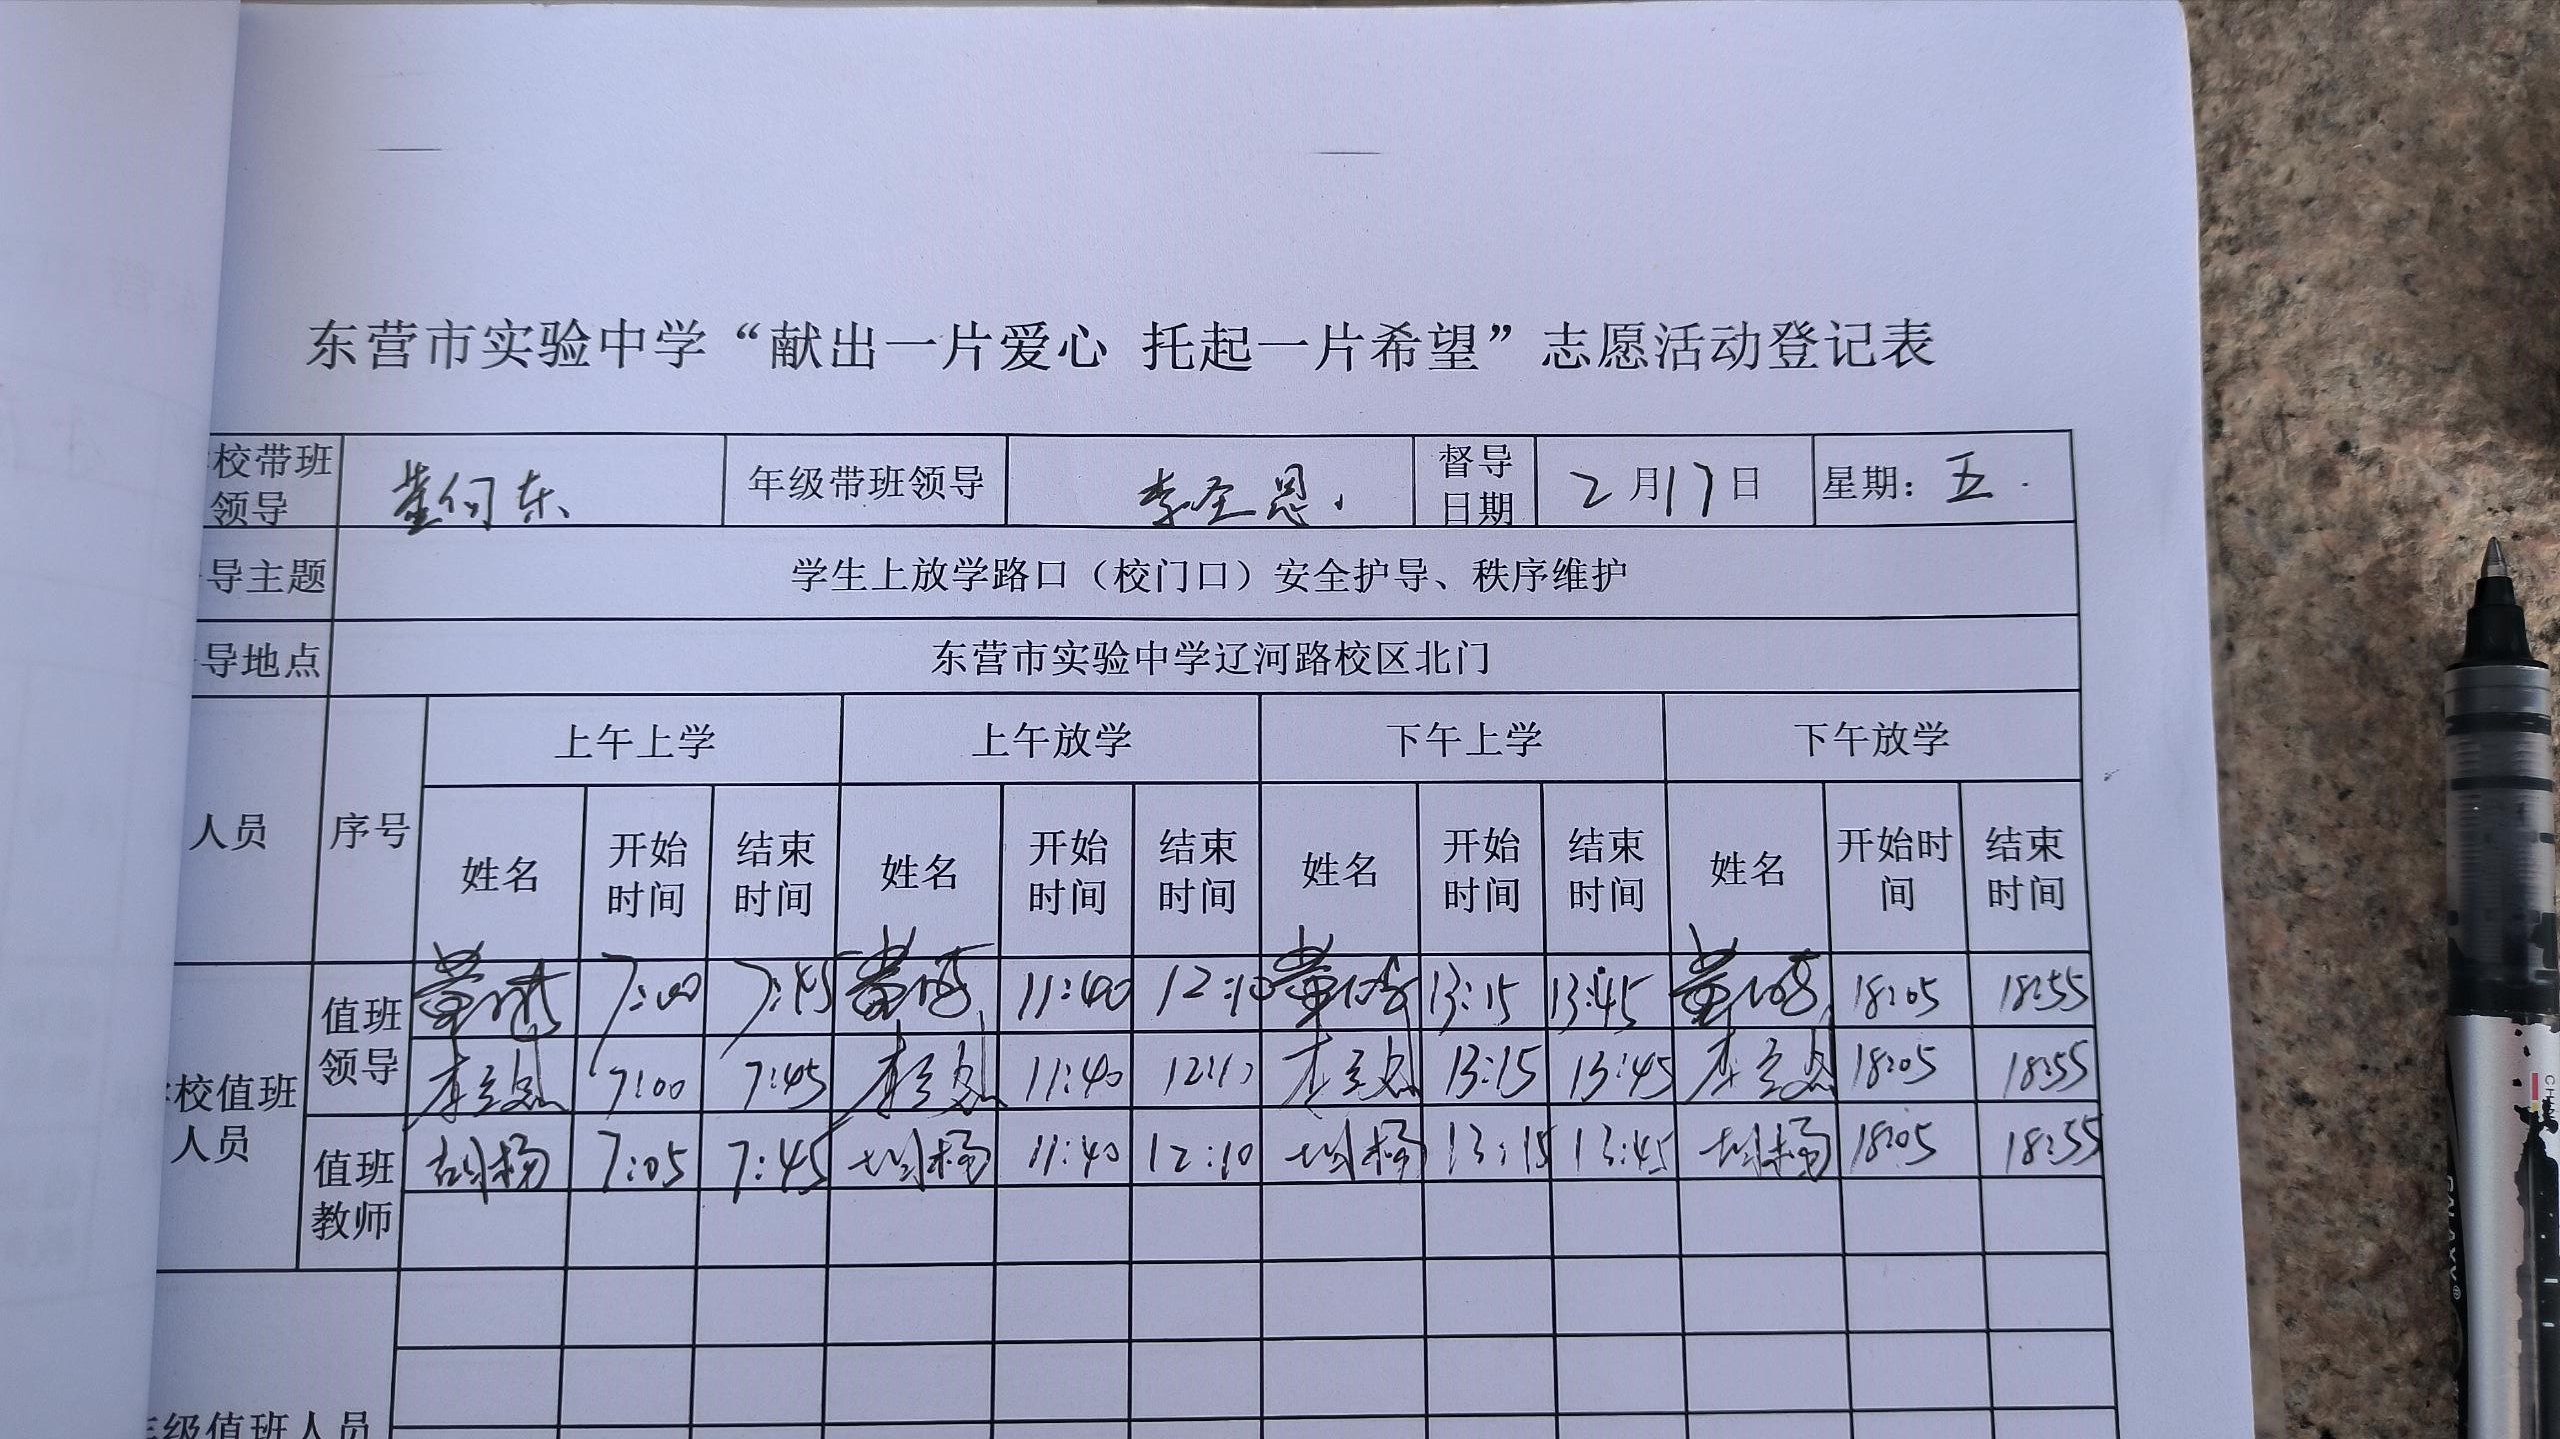 东营市实验中学“献出一片爱心 托起一片希望”志愿活动登记表
校带班领导 年级带班领导 李圣恩 督导日期 2月17日 星期：五
导主题 学生上放学路口（校门口）安全护导、秩序维护
导地点 东营市实验中学辽河路校区北门
人员 序号 上午上学 上午放学 下午上学 下午放学
姓名 开始时间 结束时间 姓名 开始时间 结束时间 姓名 开始时间 结束时间 姓名 开始时间 结束时间
校值班人员 值班领导 7:00 7:45 11:40 12:10 13:15 13:45 18:05 18:55
李圣恩 7:00 7:45 李圣恩 11:40 12:10 李圣恩 13:15 13:45 李圣恩 18:05 18:55
值班教师 胡杨 7:05 7:45 胡杨 11:40 12:10 胡杨 13:15 13:45 胡杨 18:05 18:55
级值班人员